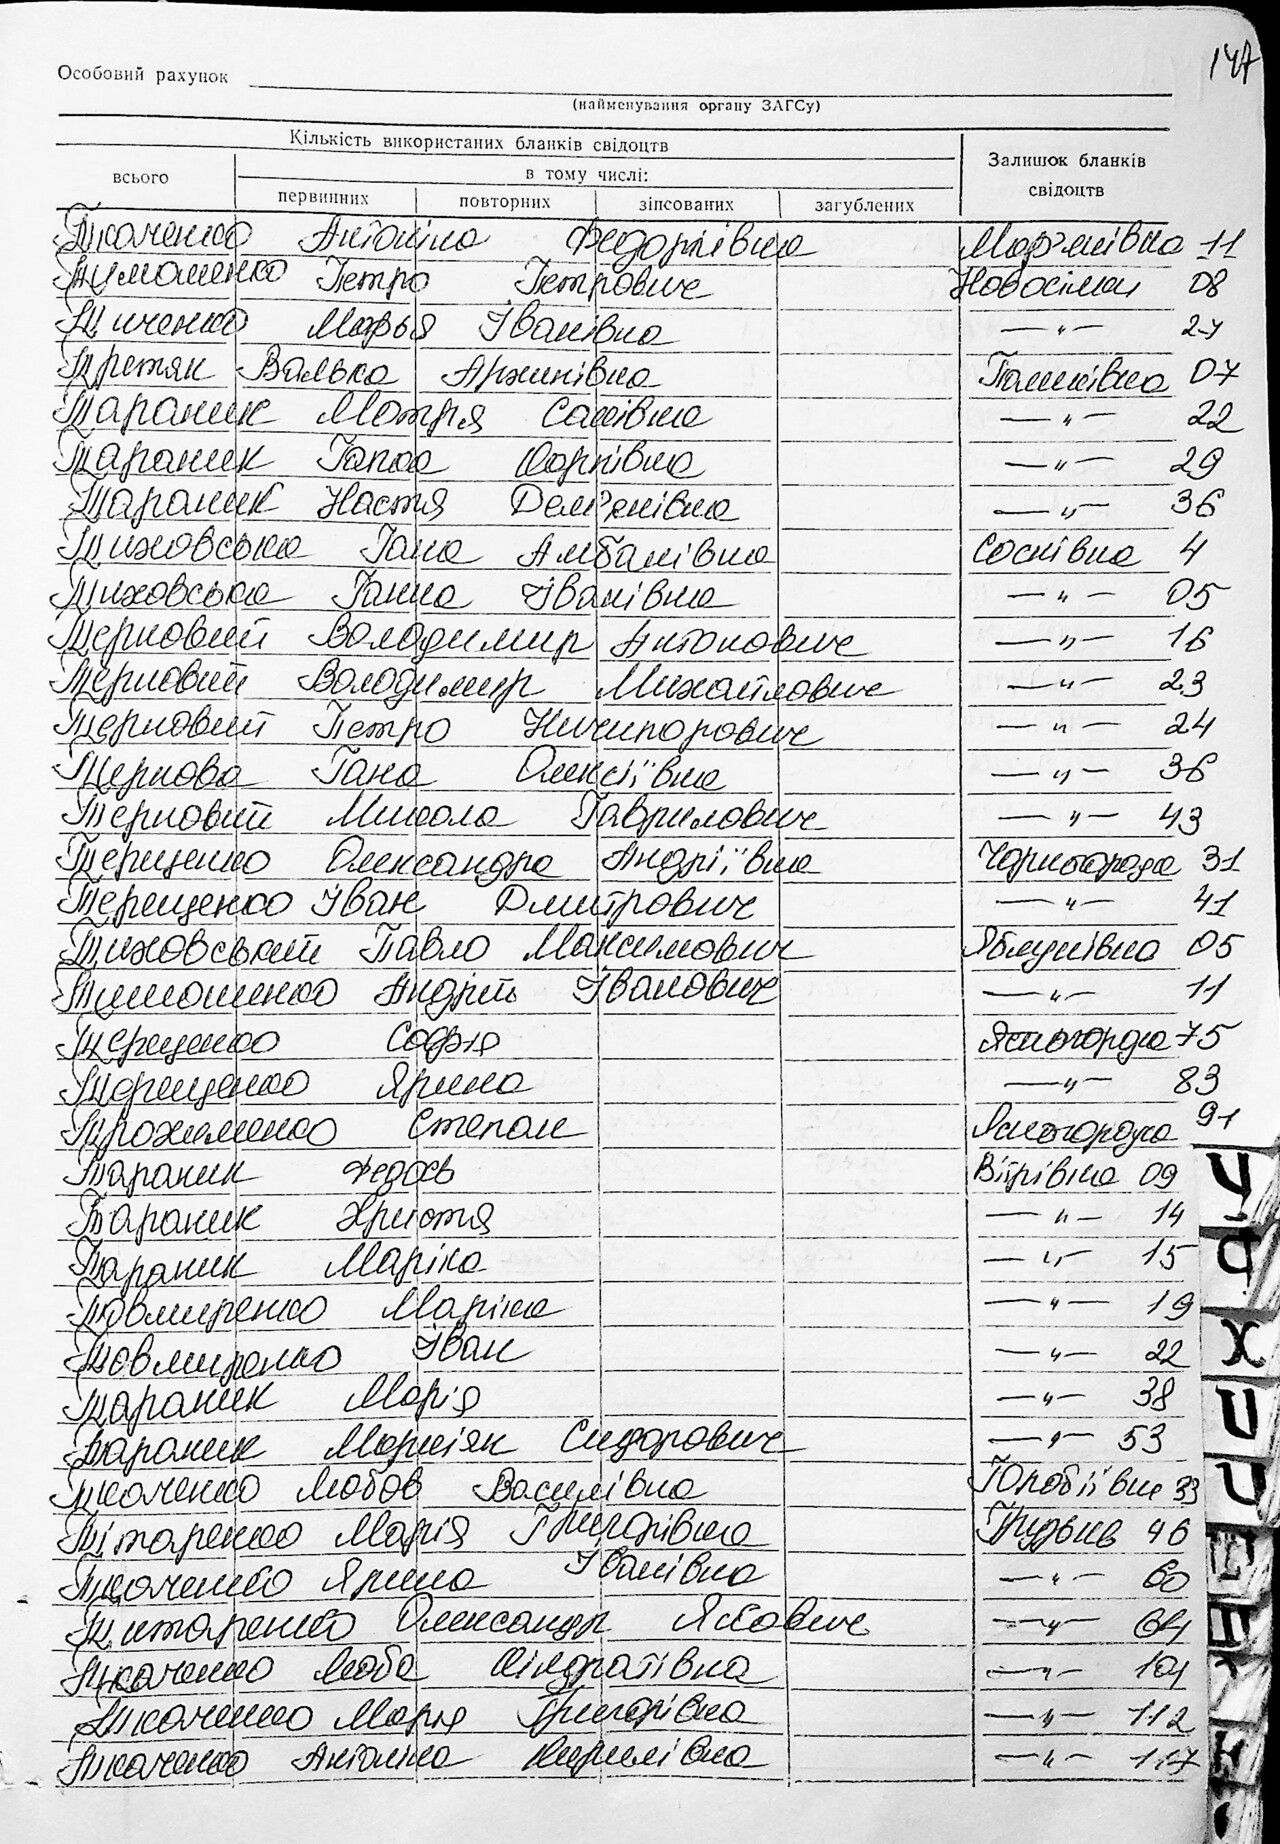 147
Особовий рахунок
(найменування органу ЗАГСу)
Кількість використаних бланків свідоцтв
Залишок бланків свідоцтв
всього
в тому числі:
первинних повторних зіпсованих загублених
Ткаченко Антоніна Федорівна Мар'янівка 11
Тимошенко Петро Петрович Новосілки 08
Марья Іванівна — " — 27
Третяк Валька 07
Тараник Мотря Савівна — " — 22
Тараник Гапка Карпівна — " — 29
Тараник Настя Дем'янівна — " — 36
Тиховська Гана Соснівка 4
Тиховська Ганна Іванівна — " — 05
Терновий Володимир Антонович — " — 16
Терновий Володимир Михайлович — " — 23
Терновий Петро Ничипорович — " — 24
Тернова Гана Олексіївна — " — 36
Терновий Микола Гаврилович — " — 43
Терещенко Олександра Андріївна Чорногородка 31
Терещенко Іван Дмитрович — " — 41
Тиховський Павло Максимович Яблунівка 05
Тимошенко Андрій Іванович — " — 11
Терещенко Софія Ясногородка 75
Терещенко Ярина — " — 83
Трохименко Степан Ясногородка 91
Тараник Федось Вітрівка 09
Тараник Христя — " — 14
Тараник Маріка — " — 15
Товмиренко Маріка — " — 19
Товмиренко Іван — " — 22
Тараник Марія — " — 38
Тараник Сидорович — " — 53
Ткаченко Любов Василівна Юробіївка 33
Тітаренко Марія Григорівна 46
Ткаченко Ярина Іванівна — " — 60
Титаренко Олександр Якович — " — 64
Ткаченко Люба Кіндратівна — " — 104
Ткаченко Марія Григорівна — " — 112
Ткаченко Антоніна Кирилівна — " — 117
У
Ф
Х
Ц